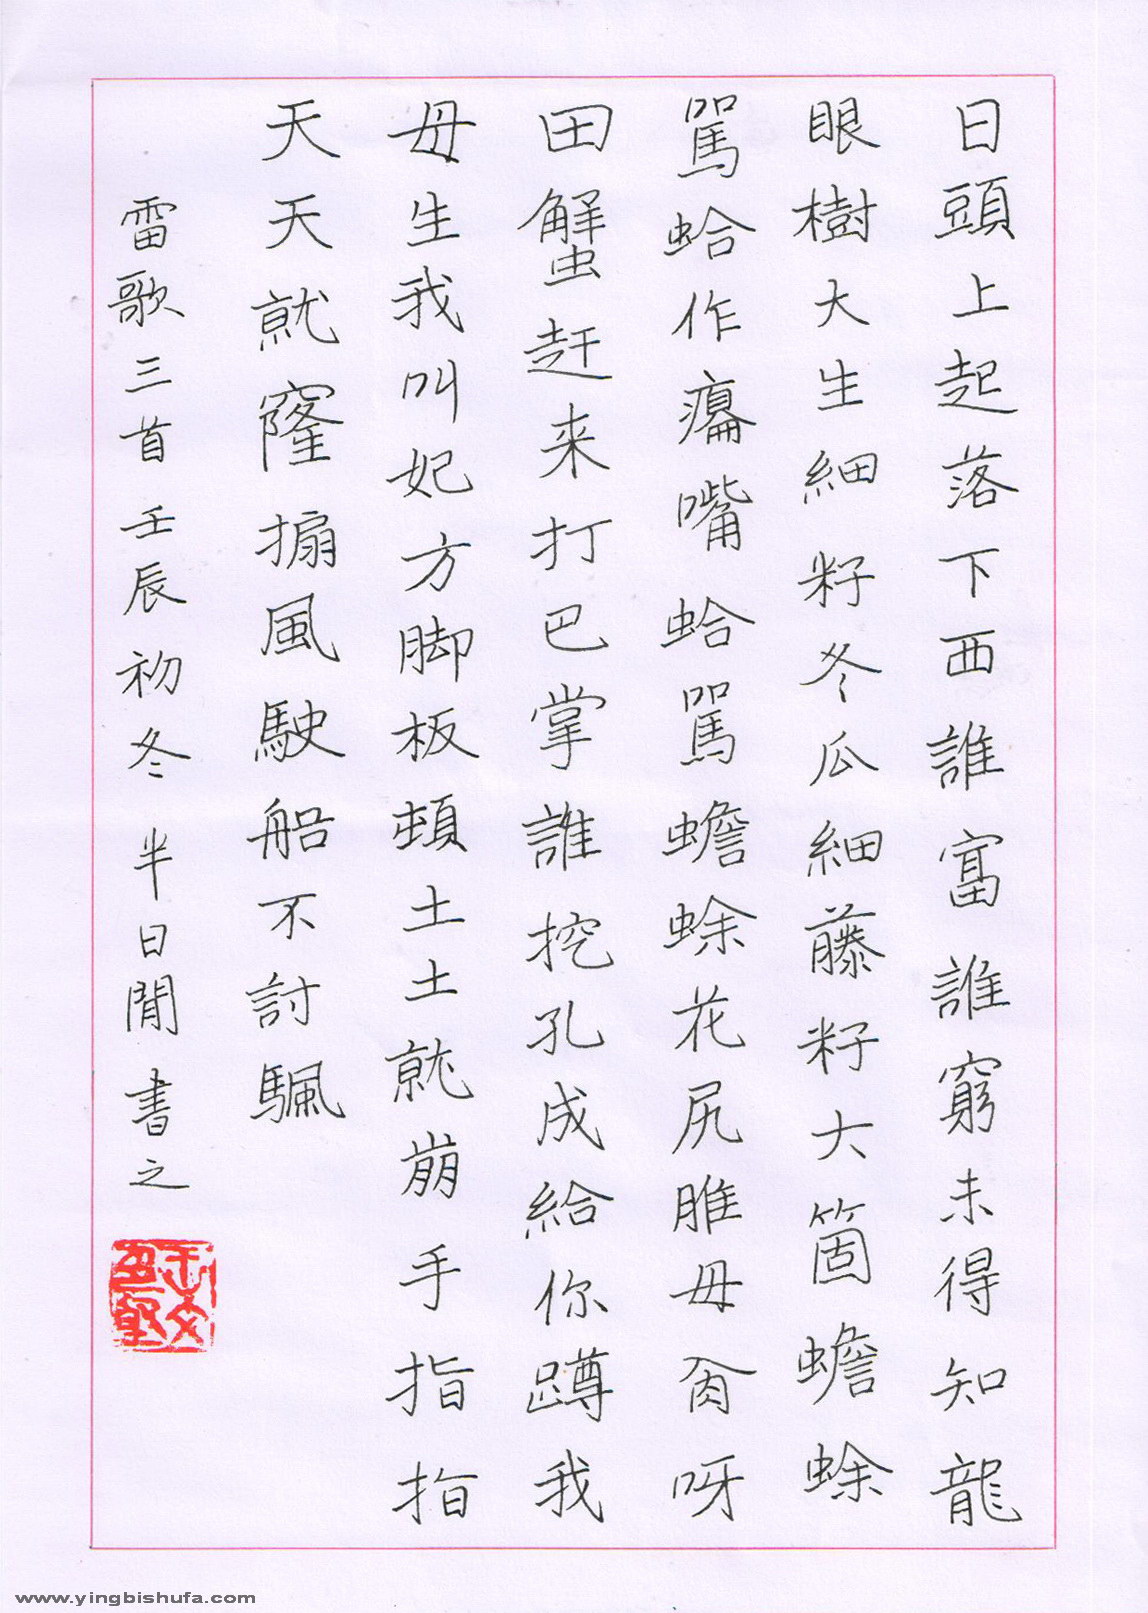 日頭上起落下西誰富誰窮未得知龍
眼樹大生細籽冬瓜細藤籽大箇蟾蜍
罵蛤作癟嘴蛤罵蟾蜍花尻脽毋肏呀
田蟹赶来打巴掌誰挖孔成給你蹲我
母生我叫妃方脚板頓土土就崩手指指
天天就窿搧風駛船不討颿
雷歌三首壬辰初冬 半日閒書之
www.yingbishufa.com